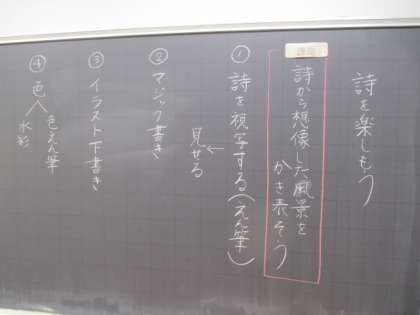 詩を楽しもう
課題
詩から想像した風景を
かき表そう
① 詩を視写する(えん筆)
見せる
② マジック書き
③ イラスト下書き
④ 色
色えん筆
水彩